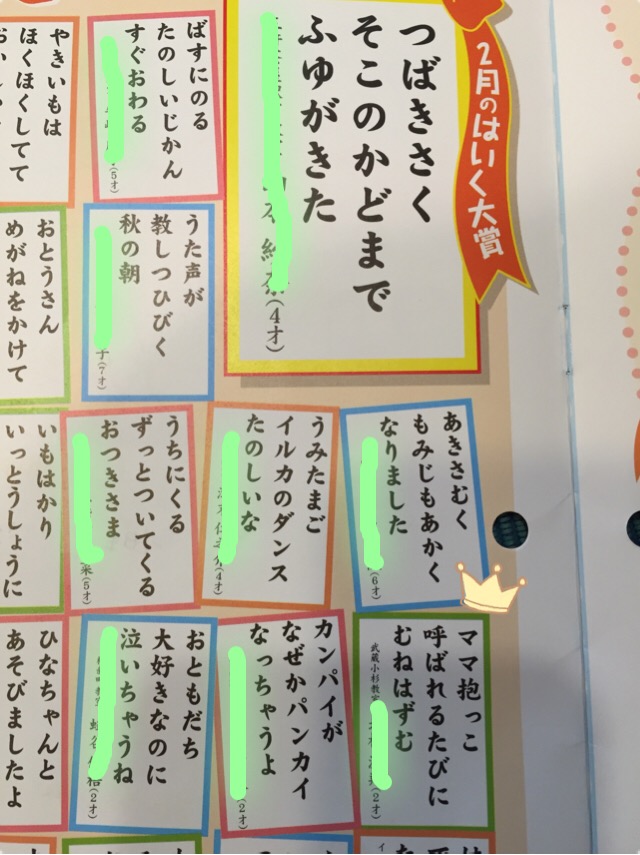 2月のはいく大賞
つばきさく
そこのかどまで
ふゆがきた
(4才)
ばすにのる
たのしいじかん
すぐおわる
(5才)
やきいもは
ほくほくしてて
うた声が
教しつひびく
秋の朝
子(7才)
おとうさん
めがねをかけて
あきさむく
もみじもあかく
なりました
(6才)
うみたまご
イルカのダンス
たのしいな
(4才)
うちにくる
ずっとついてくる
おつきさま
(5才)
いもはかり
いっとうしょうに
ママ抱っこ
呼ばれるたびに
むねはずむ
武蔵小杉教室
(2才)
カンパイが
なぜかパンカイ
なっちゃうよ
(2才)
おともだち
大好きなのに
泣いちゃうね
(2才)
ひなちゃんと
あそびましたよ